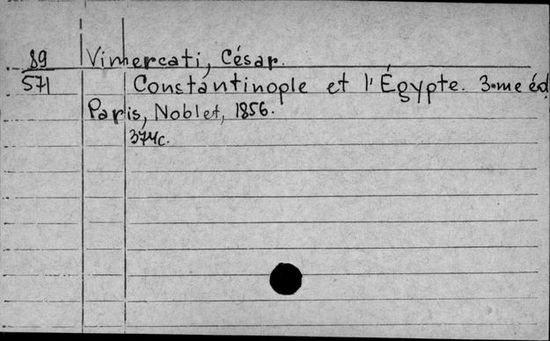 89 Vimercati, César.
571 Constantinople et l'Égypte. 3-me éd
Paris, Noblet, 1856.
374c.